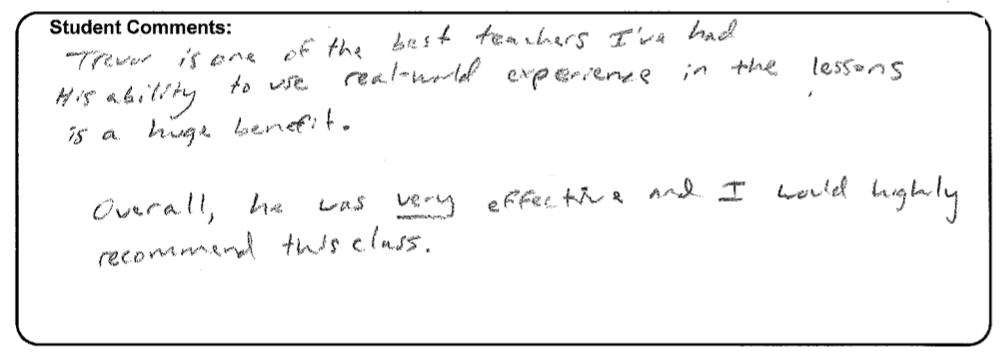 Student Comments:
Trevor is one of the best teachers I've had
His ability to use real-world experience in the lessons
is a huge benefit.
Overall, he was very effective and I would highly
recommend this class.